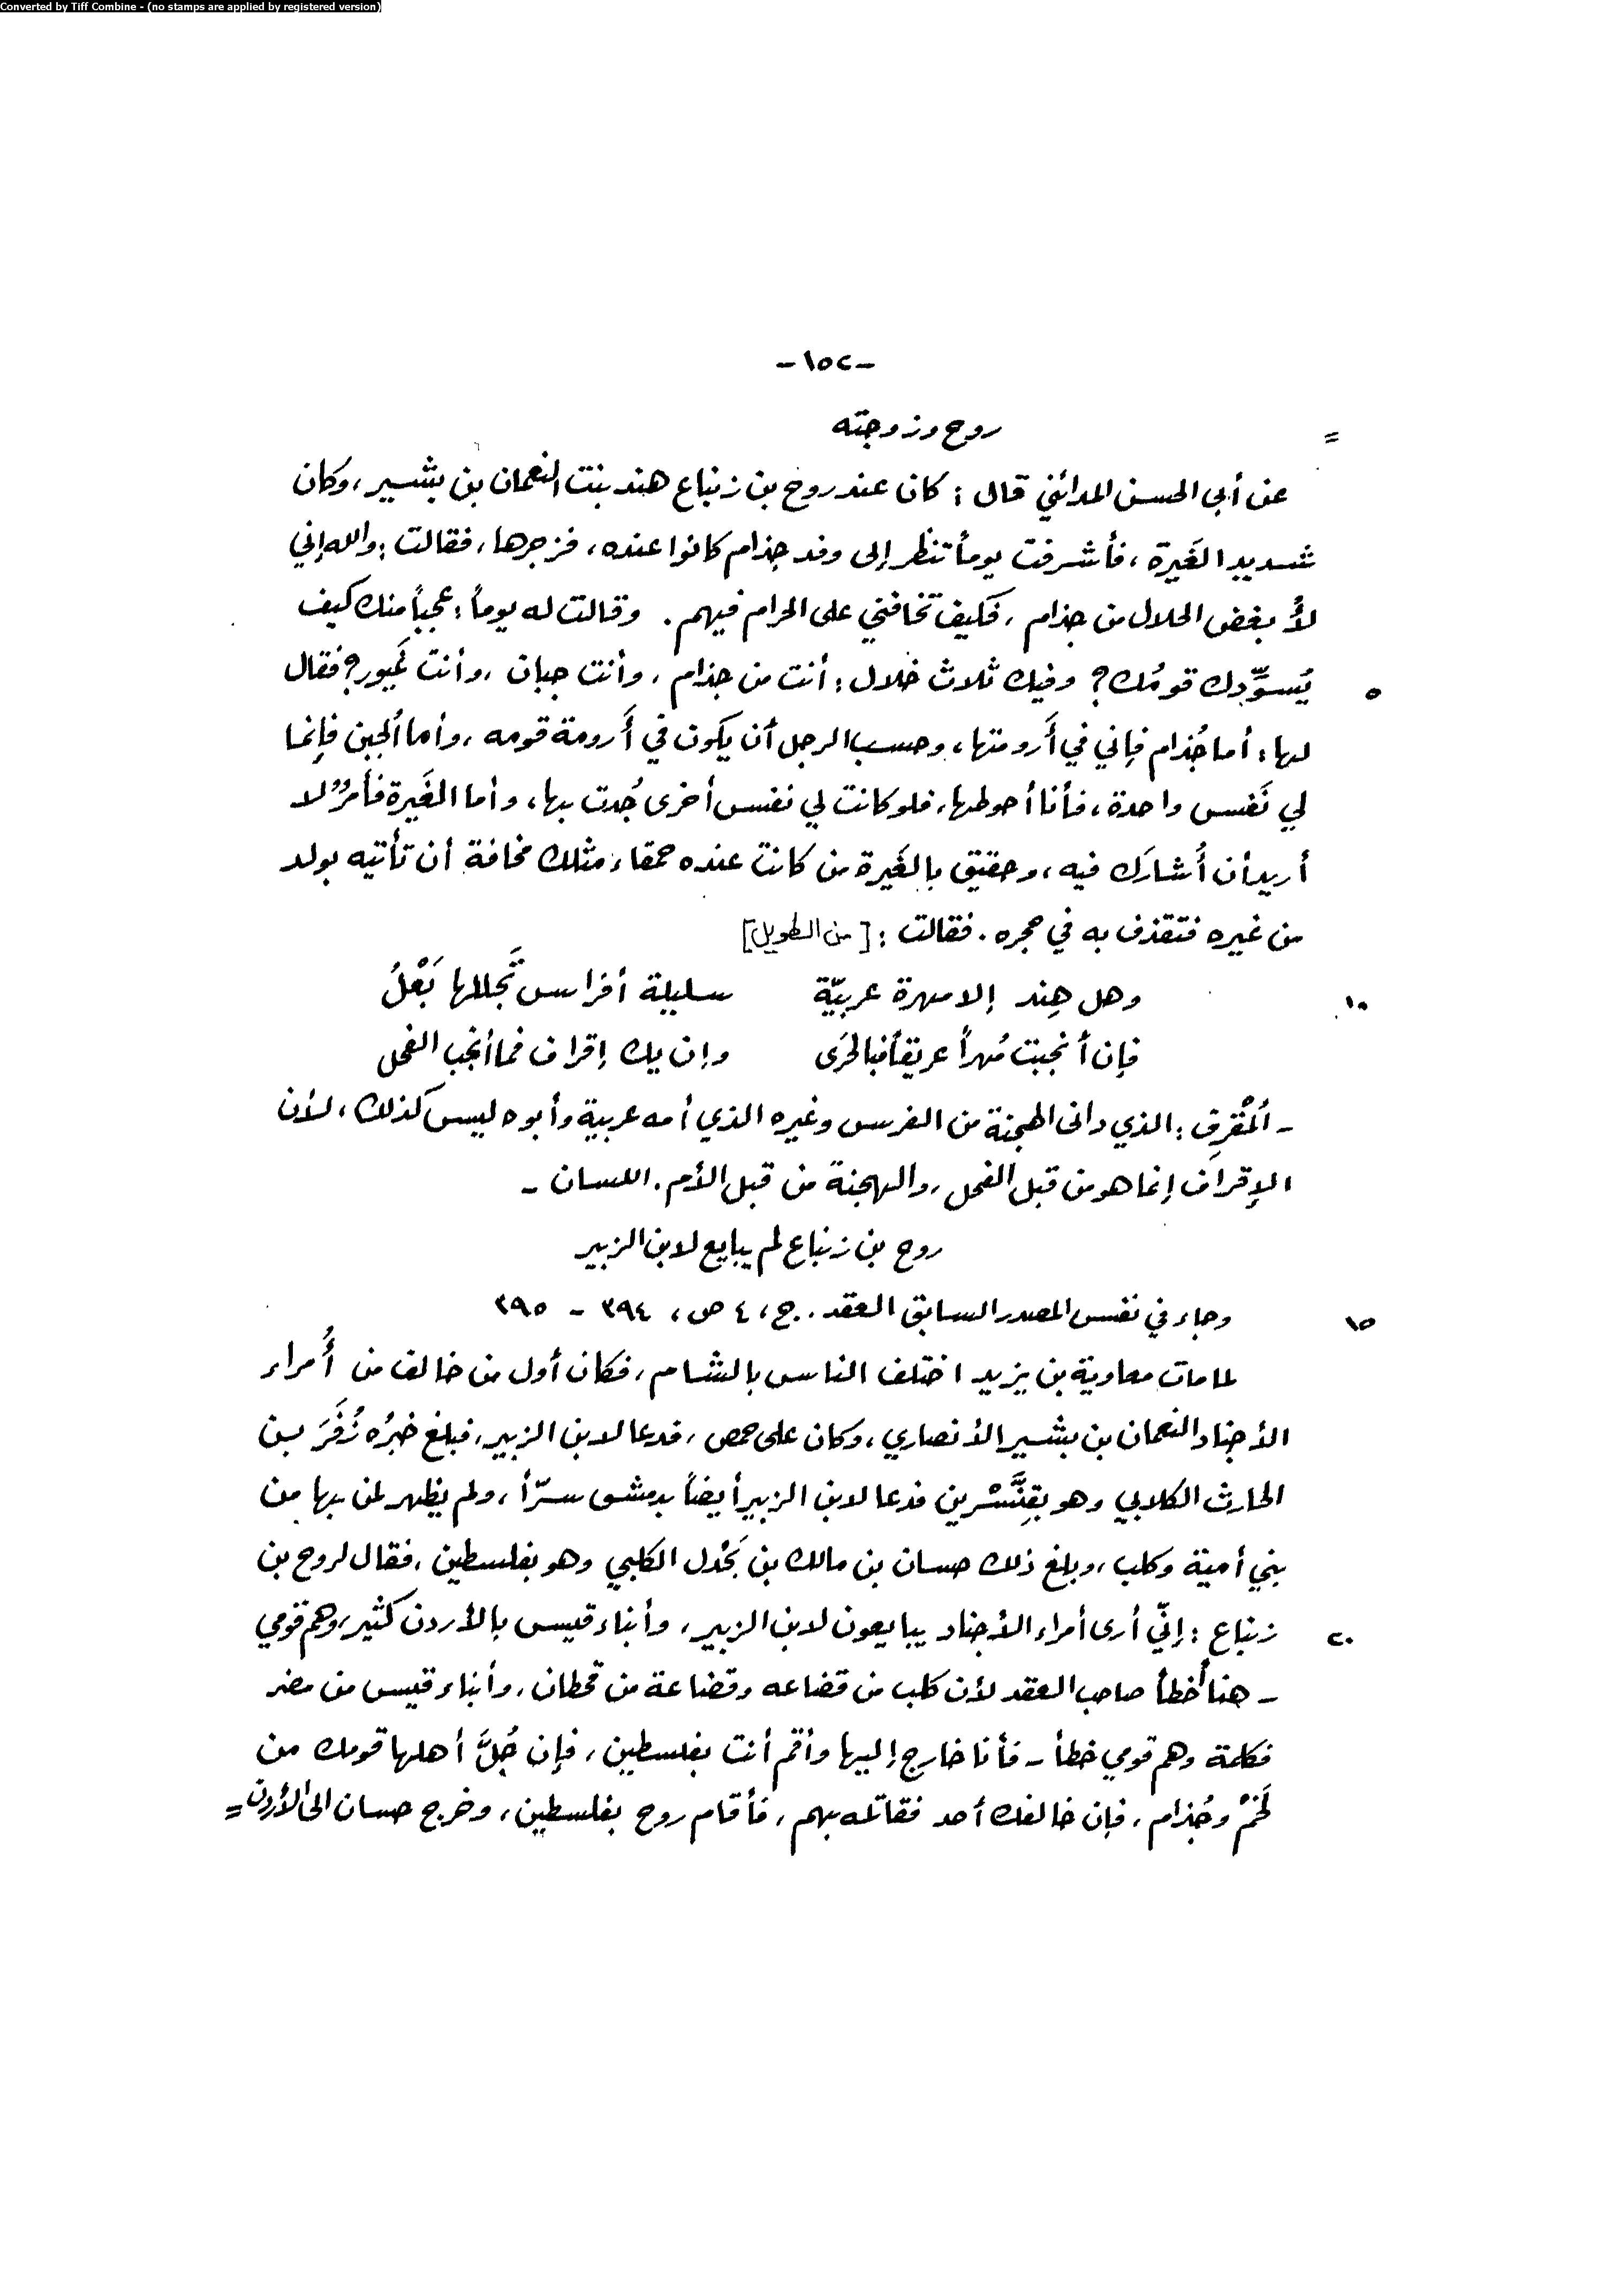 Converted by Tiff Combine - (no stamps are applied by registered version)
-١٥٢-
= روح وزوجته
عن أبي الحسن المدائني قال : كان عند روح بن زنباع هند بنت النعمان بن بشير ، وكان
شديد الغَيرة ، فأشرفت يوماً تنظر إلى وفد جذام كانوا عنده ، فزجرها ، فقالت : والله إني
لأُبغض الحلال من جذام ، فكيف تخافني على الحرام فيهم . وقالت له يوماً : عجباً منك كيف
٥ يُسوِّدك قومُك ؟ وفيك ثلاث خلال : أنت من جذام ، وأنت جبان ، وأنت غَيور ؟ فقال
لها : أما جُذام فإني في أَرومتها ، وحسب الرجل أن يكون في أَرومة قومه ، وأما الجبن فإنما
لي نَفس واحدة ، فأنا أحوطها ، فلو كانت لي نفس أخرى جُدت بها ، وأما الغَيرة فأمرٌ لا
أريد أن أُشارَك فيه ، وحقيق بالغَيرة من كانت عنده حمقاء مثلك مخافة أن تأتيه بولد
من غيره فتقذف به في حجره . فقالت : [من الطويل]
١٠ وهل هِند إلا مهرة عربيّة سليلة أفراس تَجَللها بَغْلُ
فإن أنجبت مُهراً عريقاً فبالحَرَى وإن يك إقراف فما أنجب الفحل
- اَلمُقْرِفِ : الذي دانى الهجنة من الفرس وغيره الذي أمه عربية وأبوه ليس كذلك ، لأن
الإقراف إنما هو من قبل الفحل ، والهجنة من قبل الأم . اللسان -
روح بن زنباع لم يبايع لابن الزبير
١٥ وجاء في نفس المصدر السابق العقد . ج ، ٤ ص ، ٣٩٤ - ٣٩٥
لما مات معاوية بن يزيد اختلف الناس بالشام ، فكان أول من خالف من أُمراء
الأجناد النعمان بن بشير الأنصاري ، وكان على حمص ، فدعا لابن الزبير ، فبلغ خبرُه زُفَرَ بن
الحارث الكلابي وهو بقِنَّسْرين فدعا لابن الزبير أيضاً بدمشق سرّاً ، ولم يظهر لمن بها من
بني أمية وكلب ، وبلغ ذلك حسان بن مالك بن بَحْدل الكلبي وهو بفلسطين ، فقال لروح بن
٢٠ زنباع : إنّي أرى أمراء الأجناد يبايعون لابن الزبير ، وأبناء قيس بالأردن كثير ، وهم قومي
- هنا أخطأ صاحب العقد لأن كلب من قضاعه وقضاعة من قحطان ، وأبناء قيس من مضر
فكلمة وهم قومي خطأ - فأنا خارج إليها وأقم أنت بفلسطين ، فإن جُلَّ أهلها قومك من
لَخْم وجُذام ، فإن خالفك أحد فقاتله بهم ، فأقام روح بفلسطين ، وخرج حسان الى الأردن =